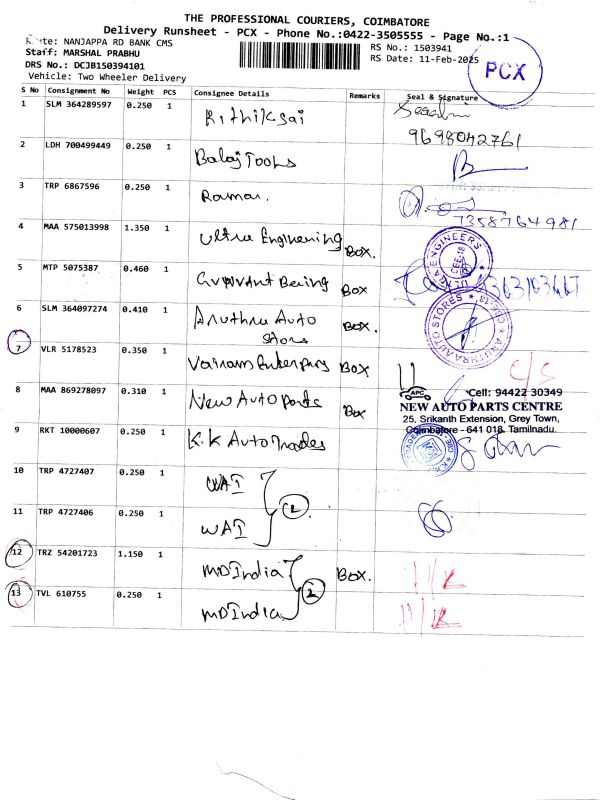 THE PROFESSIONAL COURIERS, COIMBATORE
Delivery Runsheet - PCX - Phone No.:0422-3505555 - Page No.:1
Route: NANJAPPA RD BANK CMS
RS No.: 1503941
Staff: MARSHAL PRABHU
RS Date: 11-Feb-2025
PCX
DRS No.: DCJB150394101
Vehicle: Two Wheeler Delivery
S No Consignment No Weight PCS Consignee Details Remarks Seal & Signature
1 SLM 364289597 0.250 1 Rithiksai
9698042761
2 LDH 700499449 0.250 1 Balaji Tools
3 TRP 6867596 0.250 1 Raman.
7358764981
4 MAA 575013998 1.350 1 Ultra Engineering Box.
5 MTP 5075387 0.460 1 Box
6 SLM 364097274 0.410 1 Aruthra Auto Box.
Store
7 VLR 5178523 0.350 1 Vairam Box C/S
8 MAA 869278097 0.310 1 New Auto parts Box
APC Cell: 94422 30349
NEW AUTO PARTS CENTRE
25, Srikanth Extension, Grey Town,
Coimbatore - 641 018. Tamilnadu.
9 RKT 10000607 0.250 1 K.K Auto Trades
10 TRP 4727407 0.250 1 WAI
2
11 TRP 4727406 0.250 1 WAI
12 TRZ 54201723 1.150 1 MDIndia Box.
2
13 TVL 610755 0.250 1 MDIndia